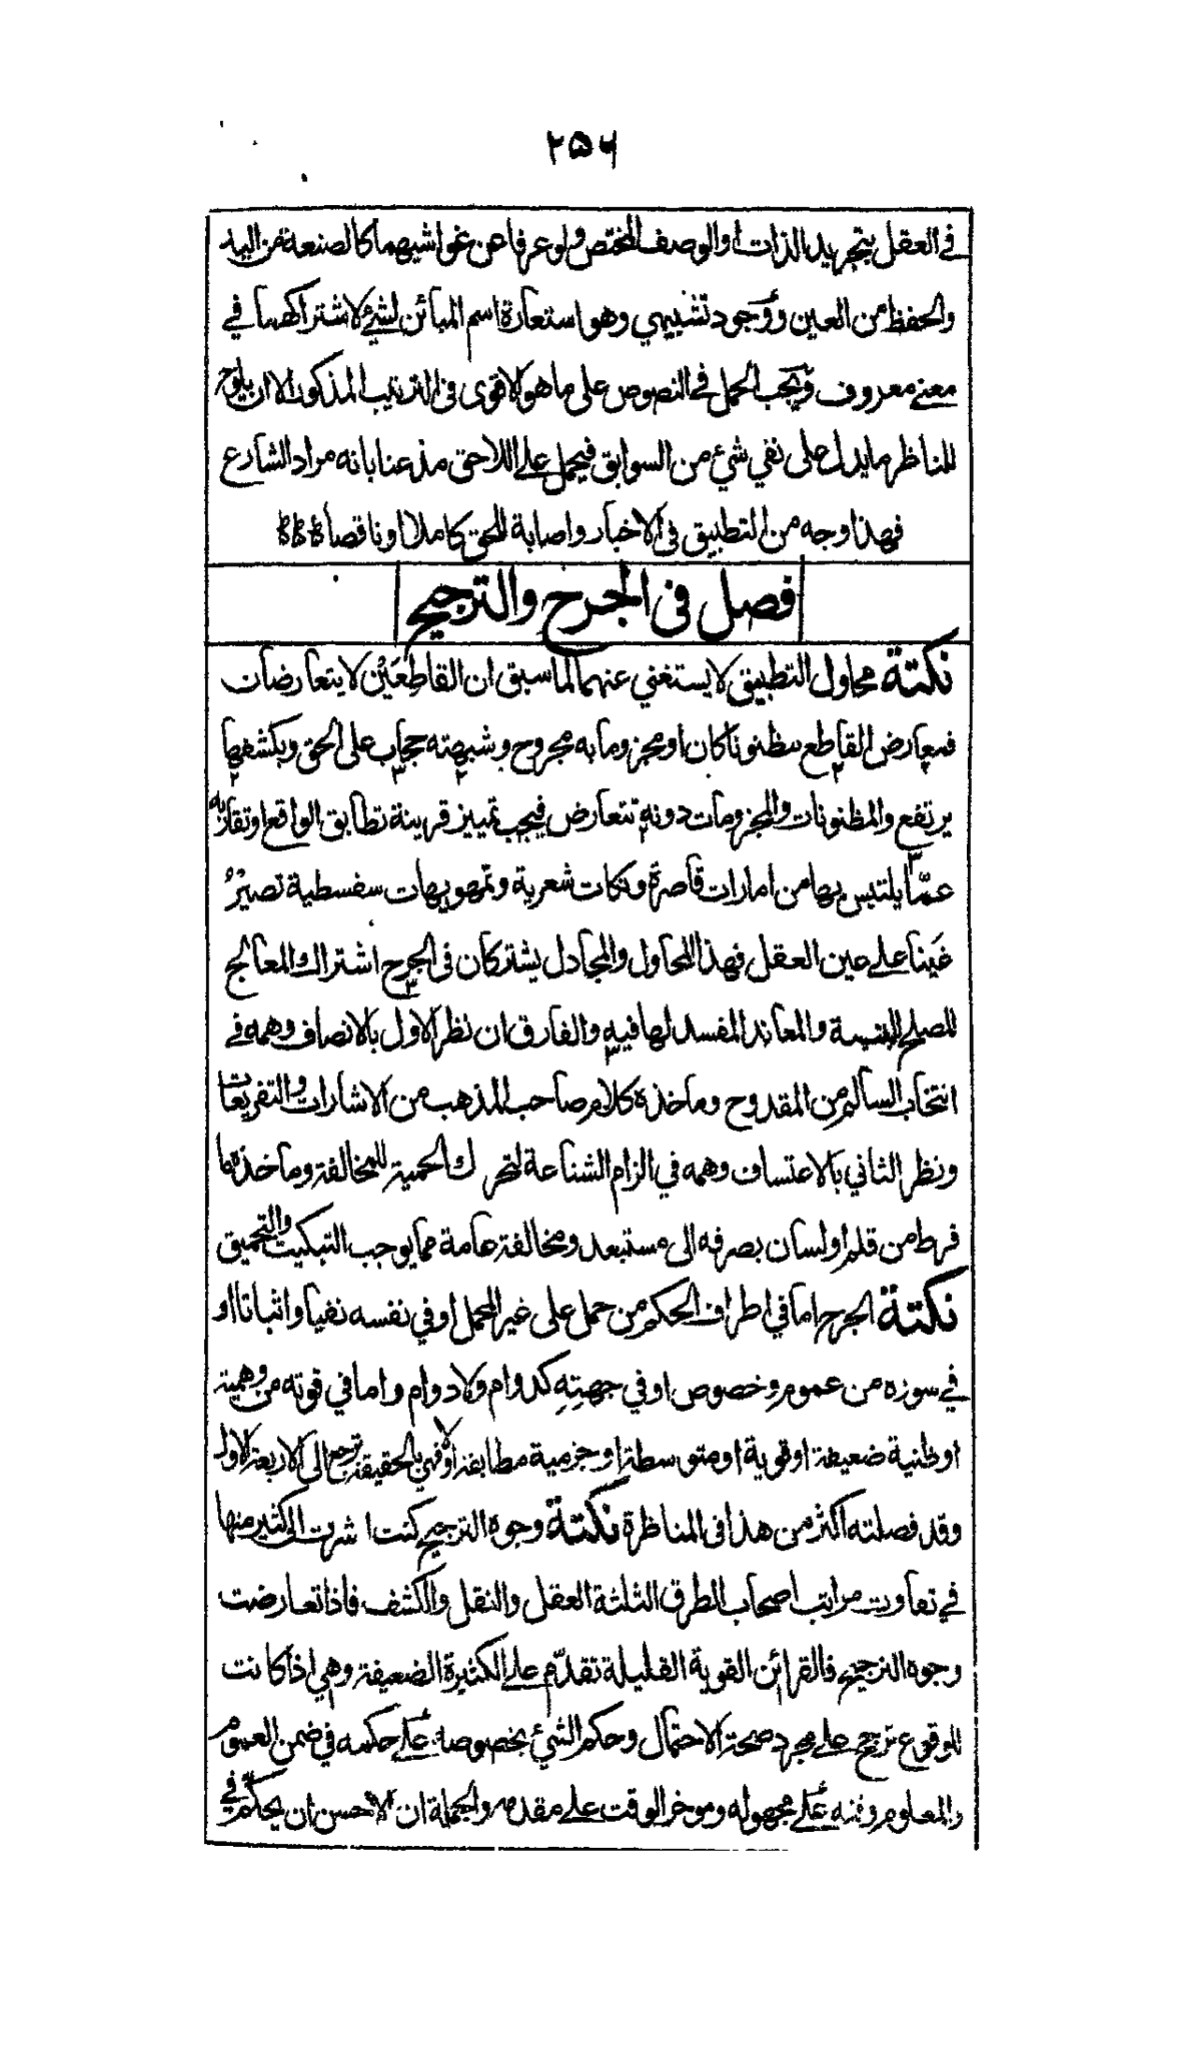 ۲۵۶
في العقل بتجريد الذات او الوصف المختص ولو عرفا عن غواشيهما كالصنعة من اليد
والحفظ من العين ووجود تشبيهي وهو استعارة اسم المبائن لشئ لاشتراكهما في
معنے معروف ويجب الحمل في النصوص على ما هو الاقوى في الترتيب المذكور الا ان يلوح
للناظر ما يدل على نفي شيء من السوابق فيحمل علے اللاحق مذعنا بانه مراد الشارع
فهذا وجه من التطبيق في الاخبار واصابة للحق كاملا او ناقصا
فصل في الجرح والترجيح
نكتة محاول التطبيق لا يستغني عنهما لما سبق ان القاطعَيْن لا يتعارضان
فمعارض القاطع مظنونا كان او مجزوما به مجروح وشبهته حجاب على الحق وبكشفها
يرتفع والمظنونات والمجزومات دونه تتعارض فيجب تمييز قرينة تطابق الواقع او تقاربه
عمّا يلتبس بها من امارات قاصرة ونكات شعرية وتمويهات سفسطية تصير
غَينا علے عين العقل فهذا المحاول والمجادل يشتركان في الجرح اشتراك المعالج
المصلح للبنية والمعاند المفسد لها فيه والفارق ان نظر الاول بالانصاف وهمه في
انتخاب السالم من المقدوح وماخذه كلام صاحب المذهب من الاشارات والتفريعات
ونظر الثاني بالاعتساف وهمه في الزام الشناعة لتحرك الحمية للمخالفة وماخذه ما
فرط من قلم او لسان بصرفه الى مستبعد ومخالفة عامة مما يوجب التبكيت والتحميق
نكتة الجرح اما في اطراف الحكم من حمل على غير المحمل او في نفسه نفيا واثباتا او
في سوره من عموم وخصوص او في جهتِهِ كدوام ولا دوام واما في قوته من وهمية
او ظنية ضعيفة او قوية او متوسطة او جزمية مطابقة او لا فهي بالحقيقة ترجع الى الاربعة الاول
وقد فصلته اكثر من هذا في المناظرة نكتة وجوه الترجيح كنت اشرت الى كثير منها
في تفاوت مراتب اصحاب الطرق الثلثة العقل والنقل والكشف فاذا تعارضت
وجوه الترجيح فالقرائن القوية القليلة تقدّم علے الكثيرة الضعيفة وهي اذا كانت
للوقوع ترجح علے مجرد صحة الاحتمال وحكم الشيء بخصوصه علے حكمه في ضمن العموم
والمعلوم وقته علے مجهوله وموخر الوقت علے مقدمه والجملة ان الاحسن ان يحكّم في